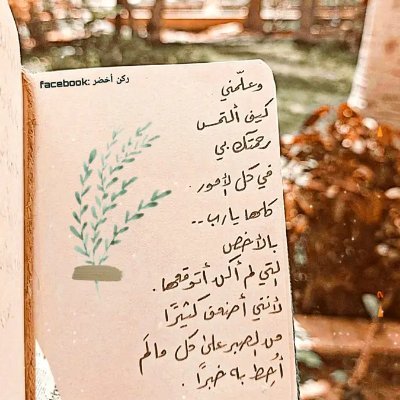 facebook: ركن أخضر
وعلّمني
كيف ألتمس
رحمتك بي
في كل الأمور.
كلها يارب..
بالأخص
التي لم أكن أتوقعها.
لأنني أضعف كثيرًا
من الصبر على كل مالَم
أُحِط به خبرًا.